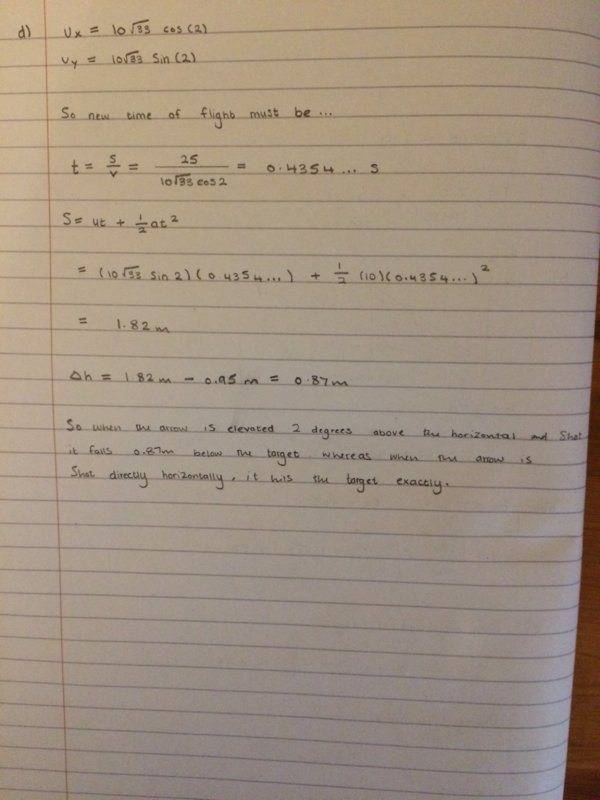 d) Ux = 10√33 cos(2)
Uy = 10√33 Sin(2)
So new time of flight must be ...
t = s/v = 25/10√33 cos2 = 0.4354... s
S = ut + 1/2 at²
= (10√33 Sin 2)(0.4354...) + 1/2 (10)(0.4354...)²
= 1.82m
Δh = 1.82m - 0.95m = 0.87m
So when the arrow is elevated 2 degrees above the horizontal and Shot
it falls 0.87m below the target whereas when the arrow is
Shot directly horizontally, it hits the target exactly.